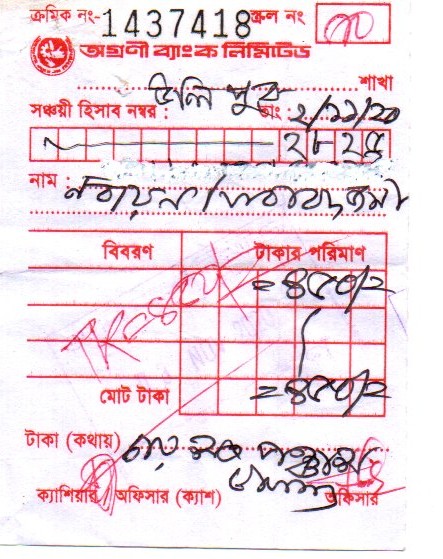 ক্রমিক নং- 1437418 স্ক্রল নং
অগ্রণী ব্যাংক লিমিটেড
উলিপুর শাখা
সঞ্চয়ী হিসাব নম্বর : তাং : ২/১১/২০
২৮২৫
নাম :
বিবরণ টাকার পরিমাণ
=৪৫০/=
মোট টাকা =৪৫০/=
টাকা (কথায়) চার শত পঞ্চাশ
ক্যাশিয়ার অফিসার (ক্যাশ) অফিসার